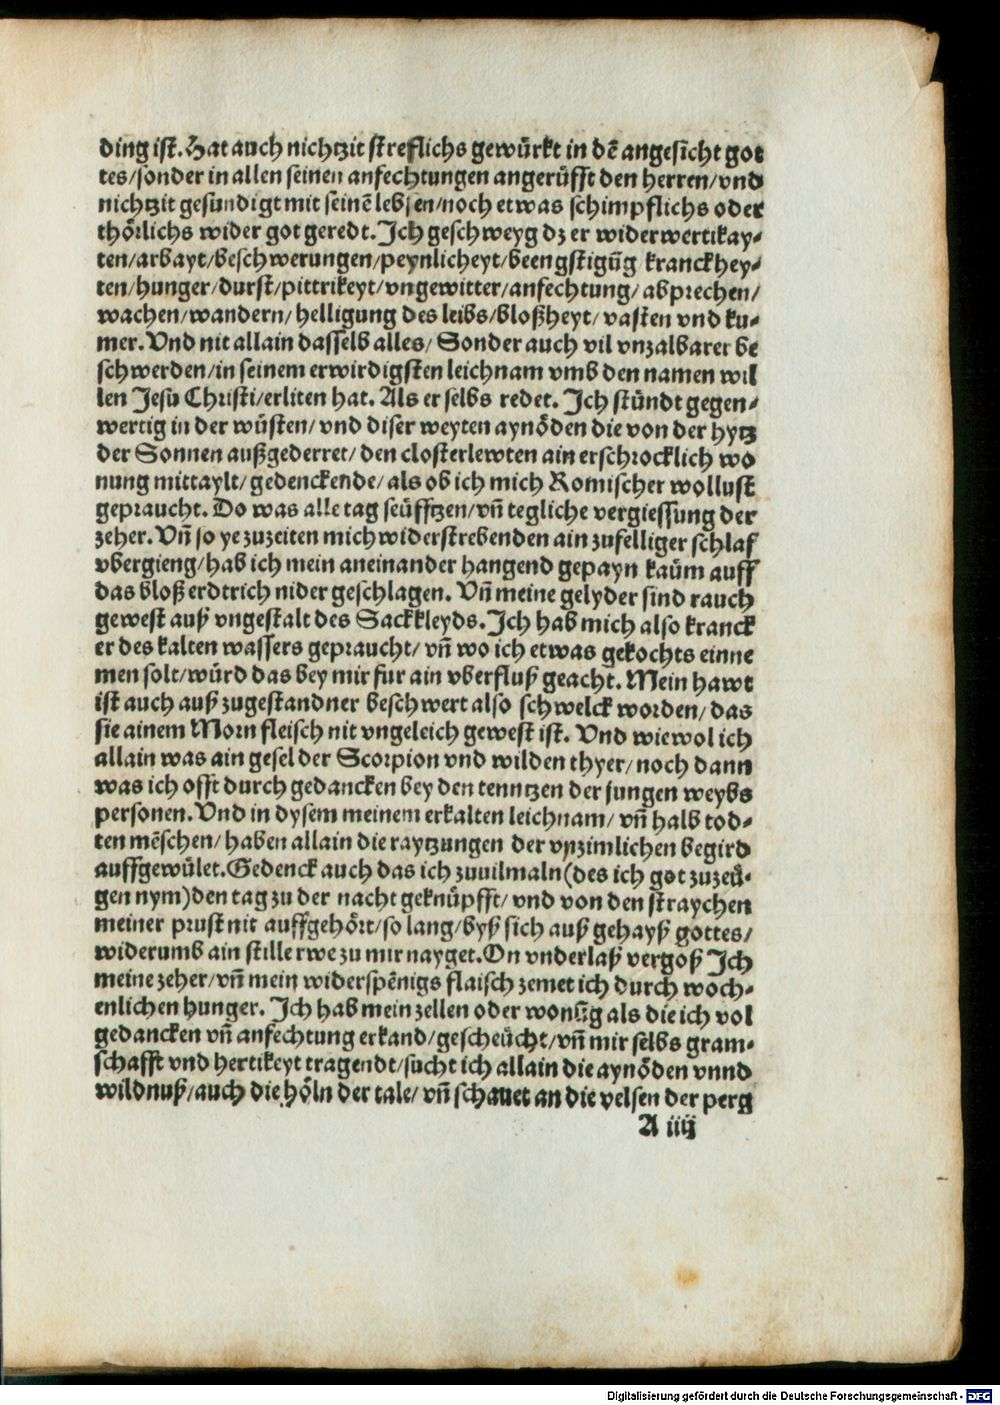 ding ist. Hat auch nichtzit streflichs gewürkt in dē angesicht got
tes/sonder in allen seinen anfechtungen angerüfft den herren/vnd
nichtzit gesundigt mit seinē lebsen/noch etwas schimpflichs oder
thörlichs wider got geredt. Ich geschweyg dz er widerwertikay⸗
ten/arbayt/beschwerungen/peynlicheyt/beengstigūg kranckhey⸗
ten/hunger/durst/pittrikeyt/vngewitter/anfechtung/abprechen/
wachen/wandern/helligung des leibs/bloßheyt/vasten vnd ku⸗
mer. Vnd nit allain dasselb alles/ Sonder auch vil vnzalbarer be
schwerden/in seinem erwirdigsten leichnam vmb den namen wil
len Jesu Christi/erliten hat. Als er selbs redet. Ich stündt gegen⸗
wertig in der wüsten/ vnd diser weyten aynöden die von der hytz
der Sonnen außgederret/ den closterlewten ain erschrocklich wo
nung mittaylt/ gedenckende/ als ob ich mich Romischer wollust
gepraucht. Do was alle tag seüfftzen/vn̄ tegliche vergiessung der
zeher. Vn̄ so ye zuzeiten mich widerstrebenden ain zufelliger schlaf
vbergieng/hab ich mein aneinander hangend gepayn kaüm auff
das bloß erdtrich nider geschlagen. Vn̄ meine gelyder sind rauch
gewest auß vngestalt des Sackkleyds. Ich hab mich also kranck
er des kalten wassers gepraucht/ vn̄ wo ich etwas gekochts einne
men solt/würd das bey mir fur ain vberfluß geacht. Mein hawt
ist auch auß zugestandner beschwert also schwelck worden/das
sie ainem Morn fleisch nit vngeleich gewest ist. Vnd wiewol ich
allain was ain gesel der Scorpion vnd wilden thyer/noch dann
was ich offt durch gedancken bey den tenntzen der jungen weybs
personen. Vnd in dysem meinem erkalten leichnam/ vn̄ halb tod⸗
ten mēschen/haben allain die raytzungen der vnzimlichen begird
auffgewület. Gedenck auch das ich zuuilmaln (des ich got zuzeü⸗
gen nym) den tag zu der nacht geknüpfft/ vnd von den straychen
meiner prust nit auffgehört/so lang/byß sich auß gehayß gottes/
widerumb ain stille rwe zu mir nayget. On vnderlaß vergoß Ich
meine zeher/vn̄ mein widerspēnigs flaisch zemet ich durch woch⸗
enlichen hunger. Ich hab mein zellen oder wonūg als die ich vol
gedancken vn̄ anfechtung erkand/gescheücht/vn̄ mir selbs gram⸗
schafft vnd hertikeyt tragendt/sucht ich allain die aynöden vnnd
wildnuß/auch die höln der tale/ vn̄ schauet an die velsen der perg
A iiij
Digitalisierung gefördert durch die Deutsche Forschungsgemeinschaft - DFG